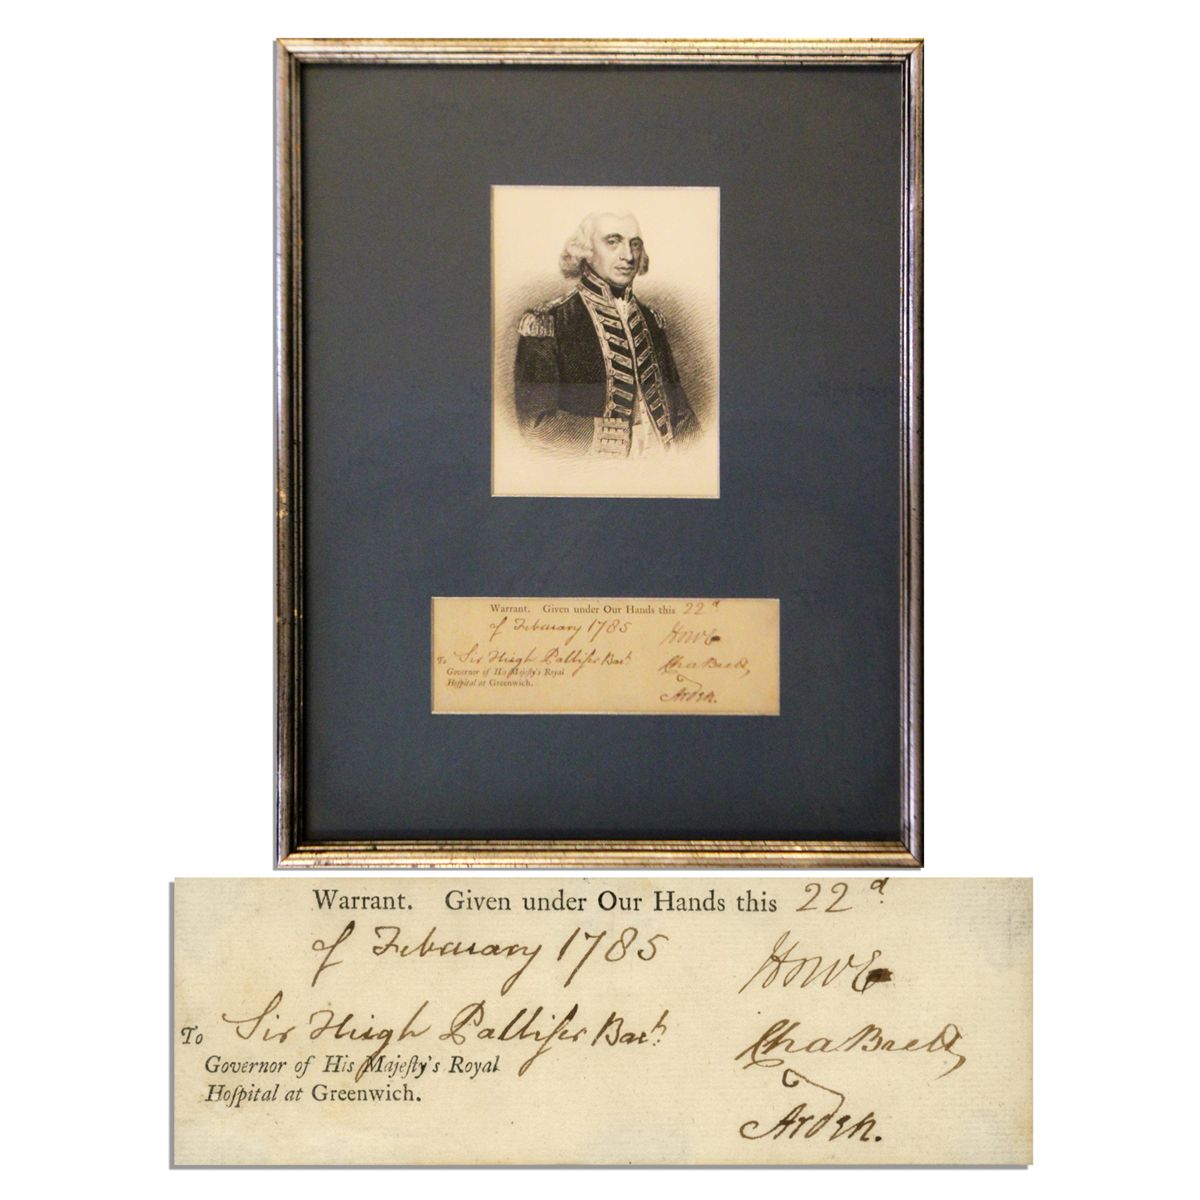 Warrant. Given under Our Hands this 22d
of February 1785
Howe
To Sir Hugh Palliser Bart.
Cha Brett
Governor of His Majeſty's Royal
Hoſpital at Greenwich.
Arden.
Warrant. Given under Our Hands this 22d
of February 1785
Howe
To Sir Hugh Palliser Bart.
Cha Brett
Governor of His Majeſty's Royal
Hoſpital at Greenwich.
Arden.